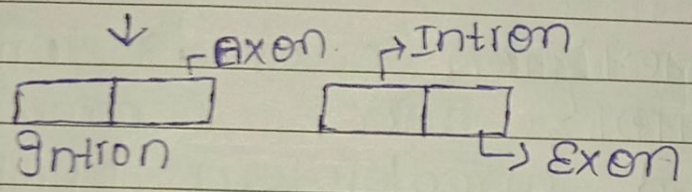 Exon
Intron
Intron
Exon